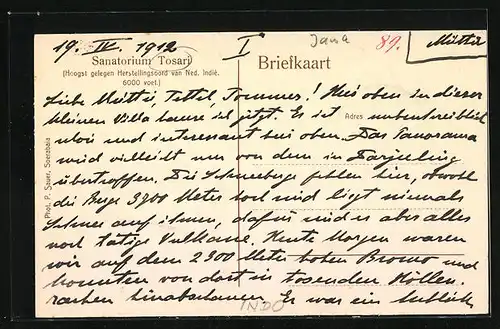 19. IV. 1912 I Java 89. Mutti
Sanatorium Tosari
(Hoogst gelegen Herstellingsoord van Ned. Indië.
6000 voet.)
Briefkaart
Adres
Phot. P. Sauer, Soerabaia
Liebe Mutti, Tettel, Tommes! Hier oben in dieser
kleinen Villa hause ich jetzt. Es ist unbeschreiblich
schön und interessant hier oben. Das Panorama
wird vielleicht nur von dem in Darjeeling
übertroffen. Die Schneeberge fehlen hier, obwohl
die Berge 3700 Meter hoch sind liegt niemals
Schnee auf ihnen, dafür sind es aber alles
noch tätige Vulkane. Heute Morgen waren
wir auf dem 2300 Meter hohen Bromo und
konnten von dort in tosenden Höllen-
rachen hinabschauen. Es war ein
INDO